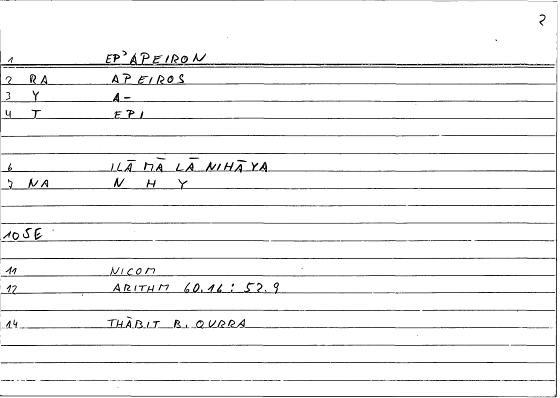 2
1 EP'APEIRON
2 RA APEIROS
3 Y A-
4 T EPI
6 ILĀ MĀ LĀ NIHĀYA
7 NA N H Y
10 SE
11 NICOM
12 ARITHM 60.16 : 52.9
14 THĀBIT B. QURRA